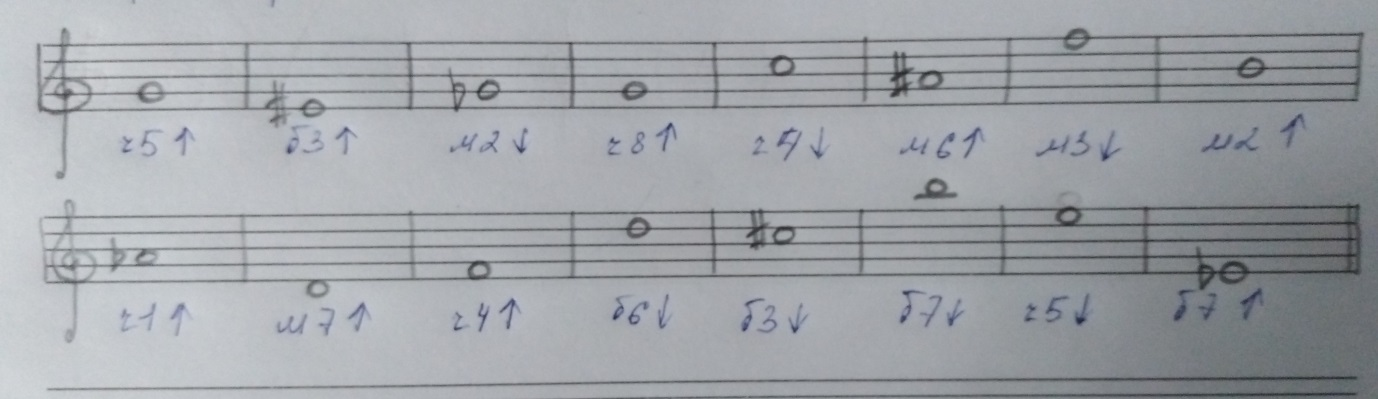 ч5↑ б3↑ м2↓ ч8↑ ч4↓ м6↑ м3↓ м2↑
ч1↑ м7↑ ч4↑ б6↓ б3↓ б7↓ ч5↓ б7↑